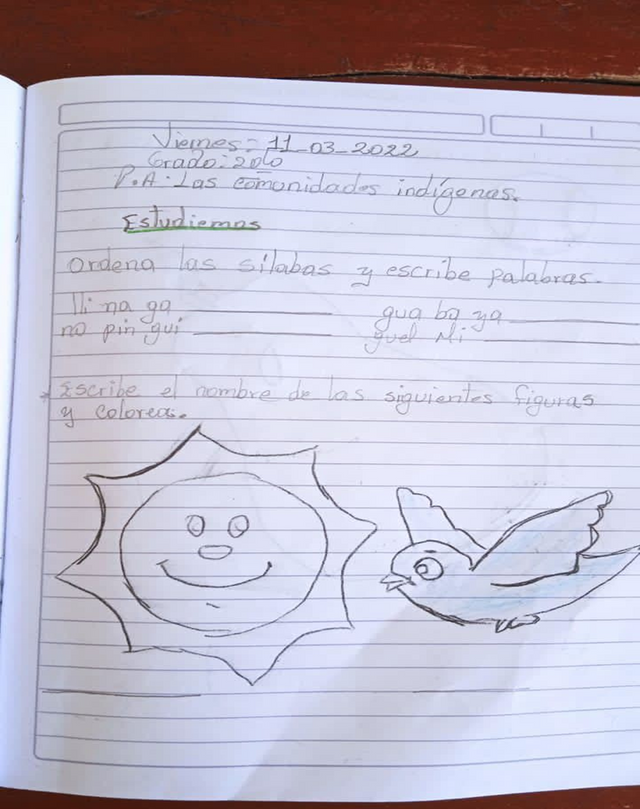 Viernes: 11-03-2022
Grado: 2do
P.A: Las comunidades indígenas.
Estudiemos
Ordena las sílabas y escribe palabras.
lli na ga gua ba ya
no pin gui guel Mi
* Escribe el nombre de las siguientes figuras
y colorea.